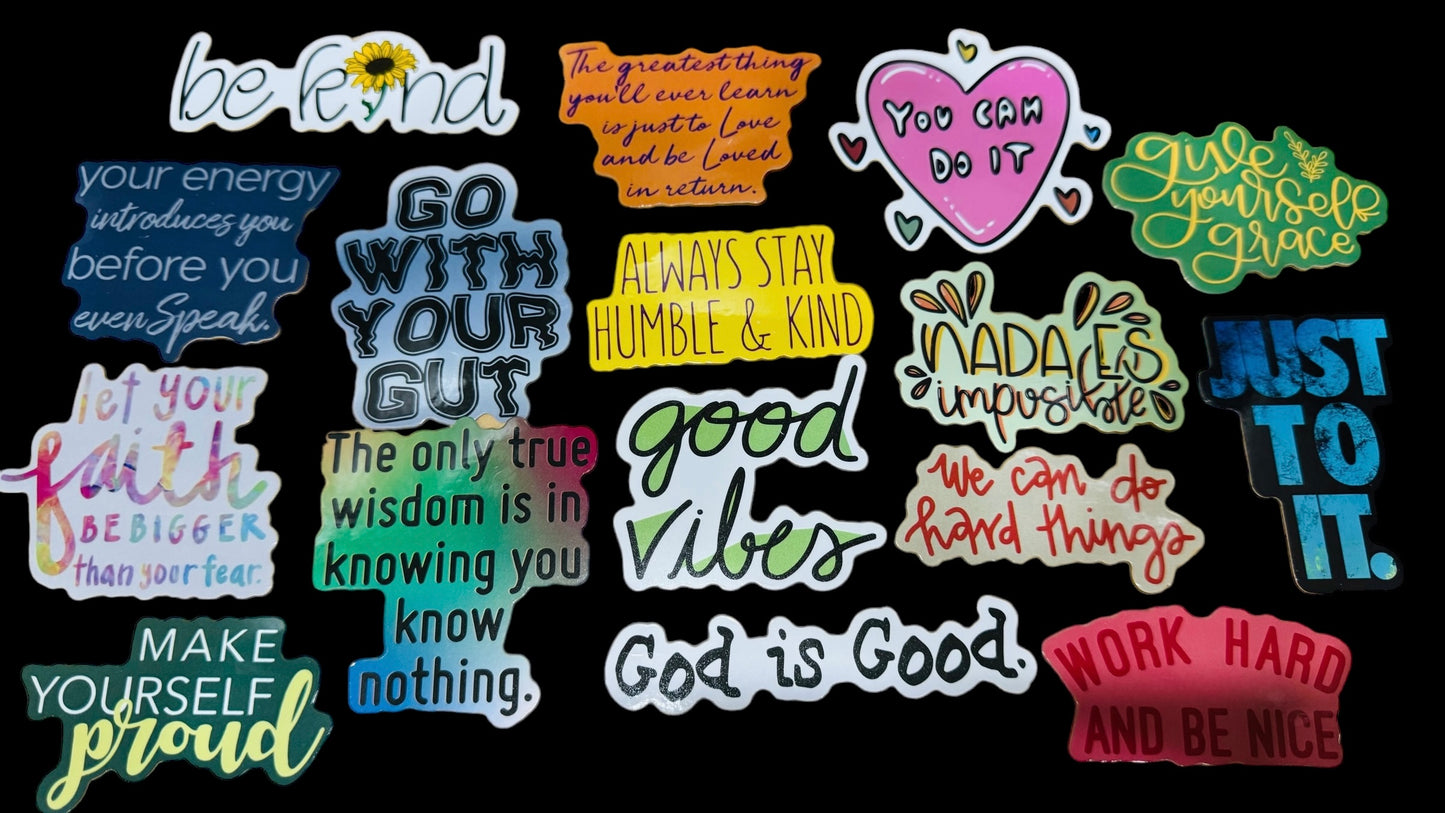 be kind.
The greatest thing
you'll ever learn
is just to Love
and be Loved
in return.
YOU CAN
DO IT
give
yourself
grace
your energy
introduces you
before you
even Speak.
GO
WITH
YOUR
GUT
ALWAYS STAY
HUMBLE & KIND
NADA ES
imposible
JUST
TO
IT.
let your
faith
BE BIGGER
than your fear.
The only true
wisdom is in
knowing you
know
nothing.
good
vibes
we can do
hard things
MAKE
YOURSELF
proud
God is Good.
WORK HARD
AND BE NICE